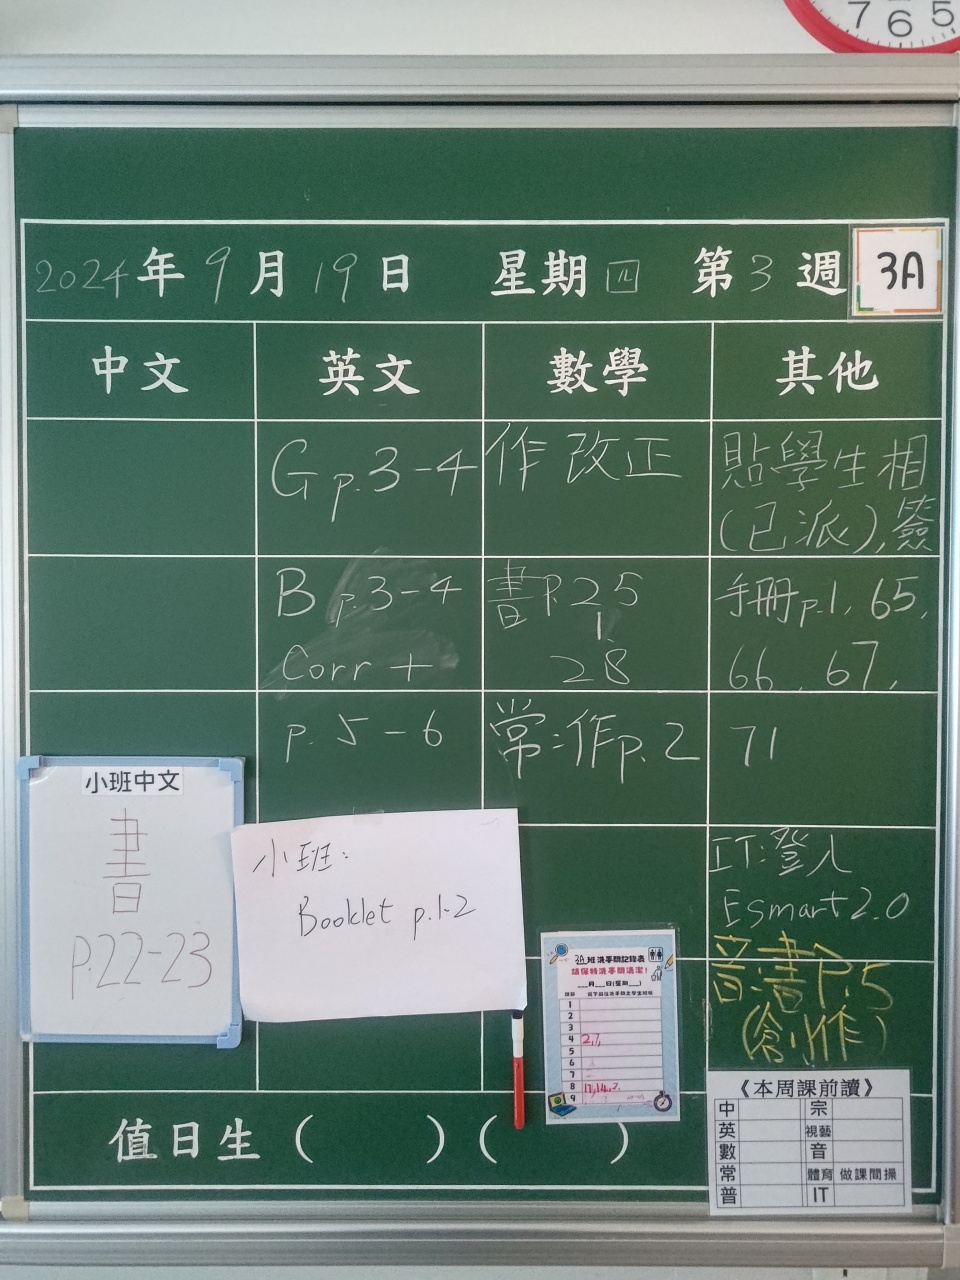 7 6 5
2024年9月19日 星期四 第3週 3A
中文 英文 數學 其他
G p.3-4
B p.3-4
Corr +
p.5-6
作 改正
書P.25
28
常:作p.2
貼學生相
(已派),簽
手冊p.1, 65,
66, 67,
71
IT:登入
Esmart2.0
音:書P.5
(創作)
小班中文
書
P.22-23
小班:
Booklet p.1-2
3A班洗手間記錄表
請保持洗手間清潔!
___月___日(星期___)
1
2
3
4 2,7,
5
6
7
8 17,14,2,
9
值日生 ( ) ( )
《本周課前讀》
中 宗
英 視藝
數 音
常 體育 做課間操
普 IT